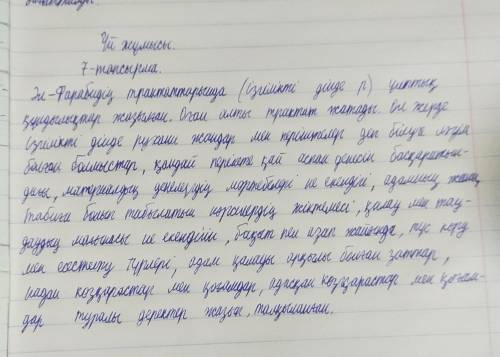 Үй жұмысы.
7-тапсырма.
Әл-Фарабидің трактаттарында (ізгілікті дінде) ұлттық
құндылықтар жазылған. Оған алты трактат жатады. Ол жерде
ізгілікті дінде рухани жандар мен періштелер деп білуге
болған болмыстар, қандай періште қай аспан денесін басқаратын-
дығы, материалдық денелердің мәртебелері не екендігі, адамның жалпы
табиғи болып табылатын нәрселердің жіктемесі, қалау мен таң-
даудың мағынасы не екендігін, бақыт пен азап жайында, түс көру
мен елестету түрлері, адам қалауы арқылы болған заттар,
надан көзқарастар мен қоғамдар, адасқан көзқарастар мен қоғам-
дар туралы деректер жазып, талдыланған.